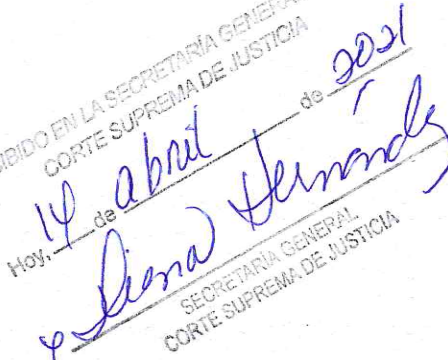 IBIDO EN LA SECRETARÍA GENERAL
CORTE SUPREMA DE JUSTICIA
Hoy, 14 de abril de 2021
Hernández
SECRETARÍA GENERAL
CORTE SUPREMA DE JUSTICIA